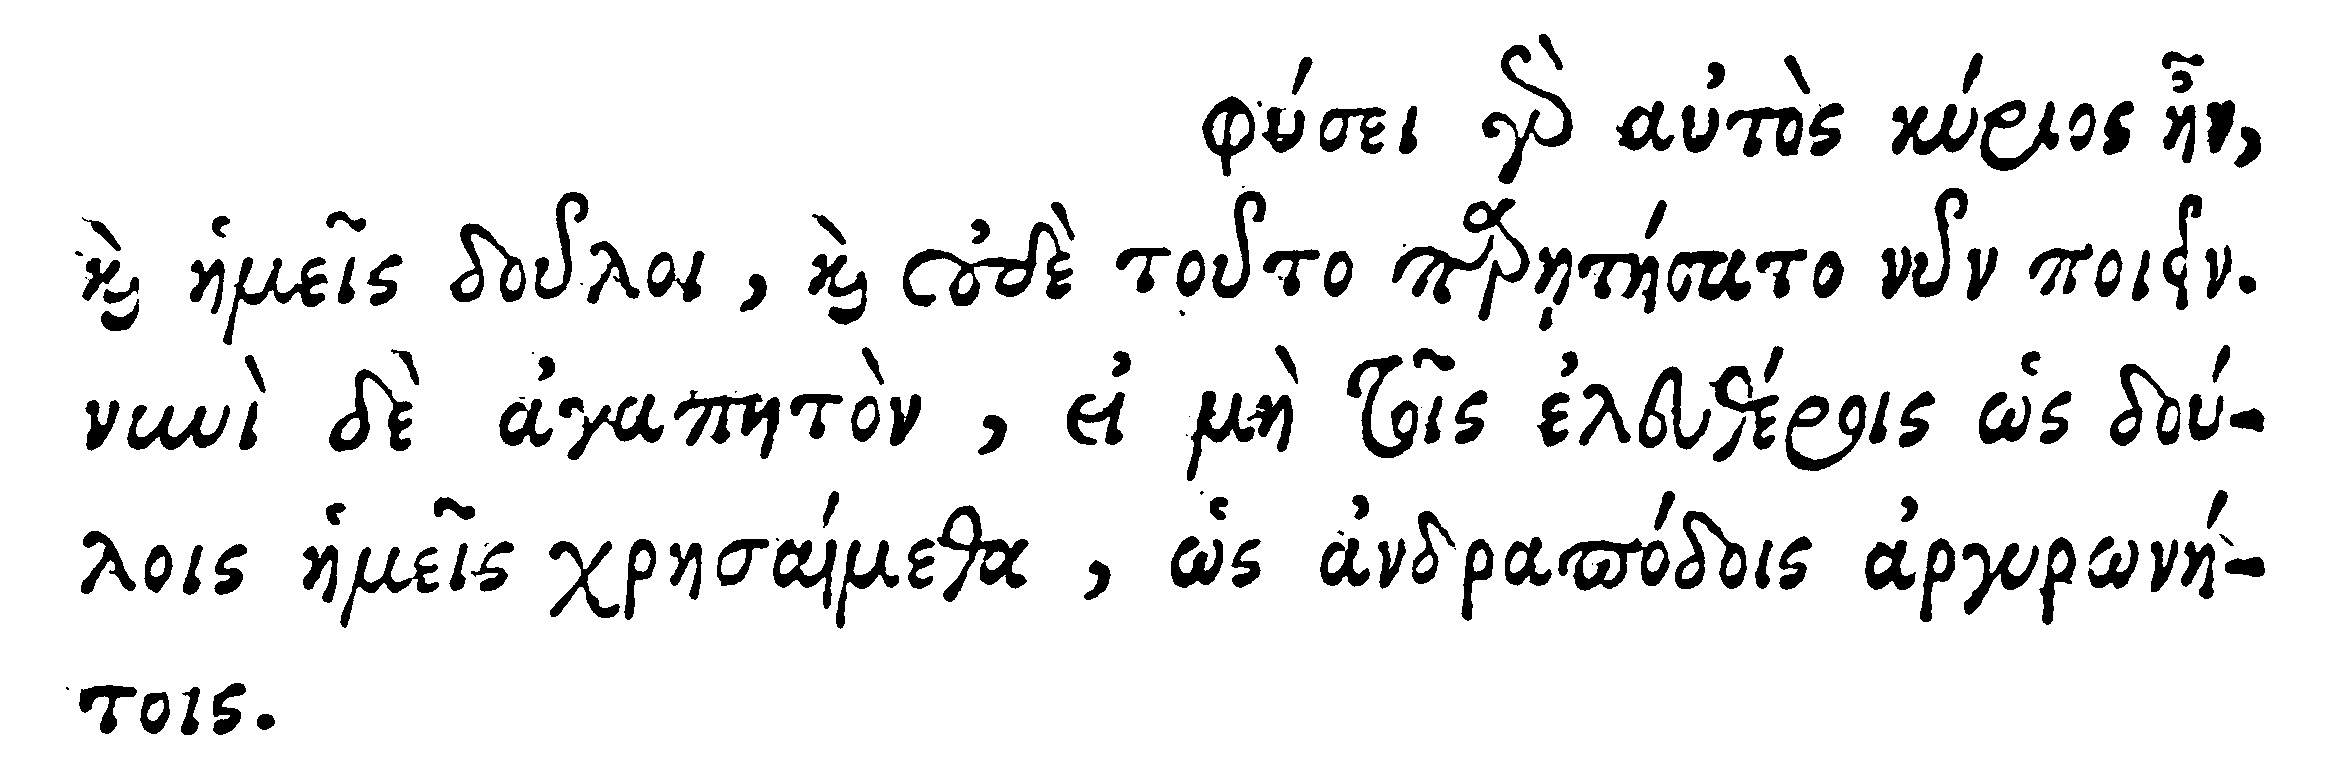 φύσει γὰρ αὐτὸς κύριος ἦν,
καὶ ἡμεῖς δοῦλοι, καὶ οὐδὲ τοῦτο παρῃτήσατο νῦν ποιεῖν.
νυνὶ δὲ ἀγαπητὸν, εἰ μὴ τοῖς ἐλευθέροις ὡς δού-
λοις ἡμεῖς χρησαίμεθα, ὡς ἀνδραπόδοις ἀργυρωνή-
τοις.